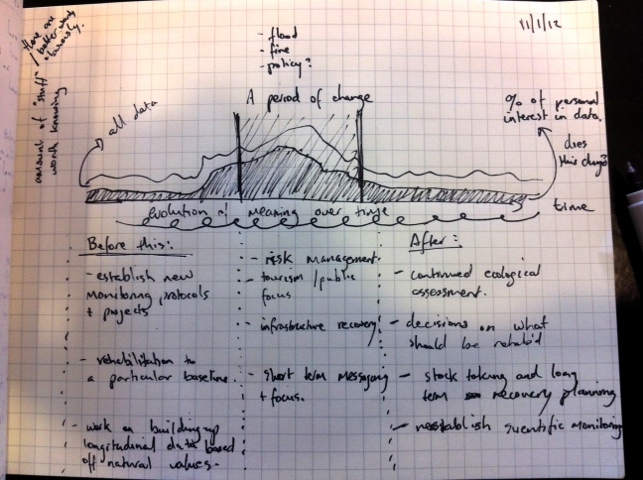 11/1/12
there are
better words
obviously.
amount of "stuff"/
worth knowing
- flood
- fire
- policy?
A period of change
all data
% of personal
interest in data.
does
this change?
time
evolution of meaning over time
Before this:
- establish new
monitoring protocols
+ projects
- rehabilitation to
a particular baseline.
- work on building up
longitudinal data based
off natural values.
- risk management.
- tourism / public
focus
- infrastructure recovery
- short term messaging
+ focus.
After:
- continued ecological
assessment.
- decisions on what
should be rehab'd
- stock taking and long
term recovery planning
- reestablish scientific monitoring